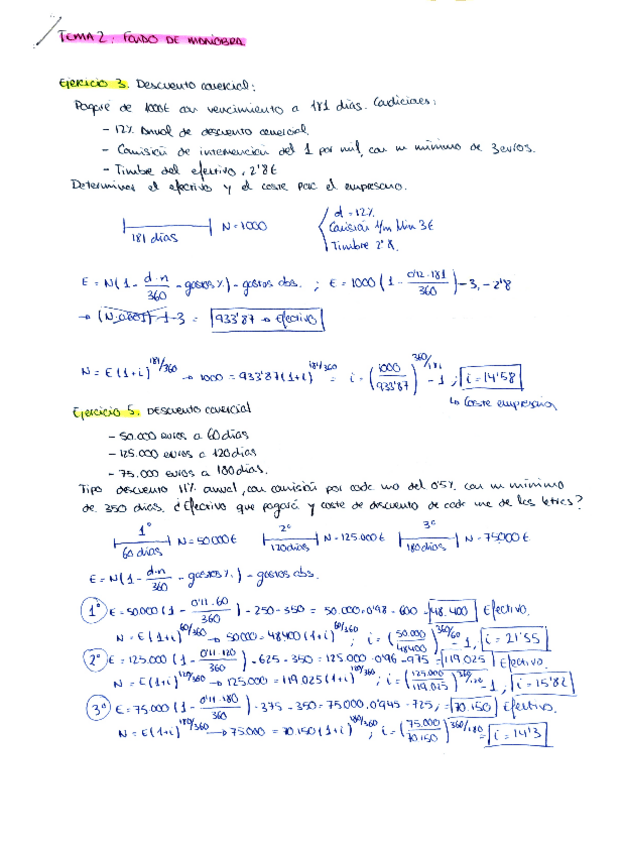 TEMA 2: FONDO DE MANIOBRA
Ejercicio 3. Descuento comercial:
Pagaré de 1000€ con vencimiento a 181 días. Condiciones:
- 12% anual de descuento comercial.
- Comisión de intermediación del 1 por mil, con un mínimo de 3 euros.
- Timbre del efectivo, 2'8€
Determinar el efectivo y el coste para el empresario.
181 días N = 1000
d = 12%
Comisión 1/m Min 3€
Timbre 2'8.
E = N(1 - d·n/360 - gastos%) - gastos abs. ; E = 1000(1 - 0'12·181/360) - 3, - 2'8
→ (N·0.001) 1-3 = 933'87 → Efectivo
N = E(1+i)^181/360 → 1000 = 933'87(1+i)^181/360 = i = (1000/933'87)^360/181 - 1 ; i = 14'58
↳ Coste empresario
Ejercicio 5. Descuento comercial
- 50.000 euros a 60 días
- 125.000 euros a 120 días
- 75.000 euros a 180 días.
Tipo descuento 11% anual, con comisión por cada uno del 0'5% con un mínimo
de 350 días. ¿Efectivo que pagará y coste de descuento de cada una de las letras?
1º 60 días N = 50000€ 2º 120 días N = 125.000€ 3º 180 días N = 75000€
E = N(1 - d·n/360 - gastos%.) - gastos abs.
1º E = 50.000(1 - 0'11·60/360) - 250 - 350 = 50.000·0'98 - 600 = 48.400 Efectivo.
N = E(1+i)^60/360 → 50000 = 48400(1+i)^60/360 ; i = (50.000/48400)^360/60 - 1, i = 21'55
2º E = 125.000(1 - 0'11·120/360) - 625 - 350 = 125.000·0'96 - 975 = 119.025 Efectivo.
N = E(1+i)^120/360 → 125.000 = 119.025(1+i)^120/360 ; i = (125.000/119.025)^360/120 - 1, i = 15'82
3º E = 75.000(1 - 0'11·180/360) - 375 - 350 = 75.000·0'945 - 725, = 70.150 Efectivo.
N = E(1+i)^180/360 → 75.000 = 70.150(1+i)^180/360 ; i = (75.000/70.150)^360/180 = i = 14'3